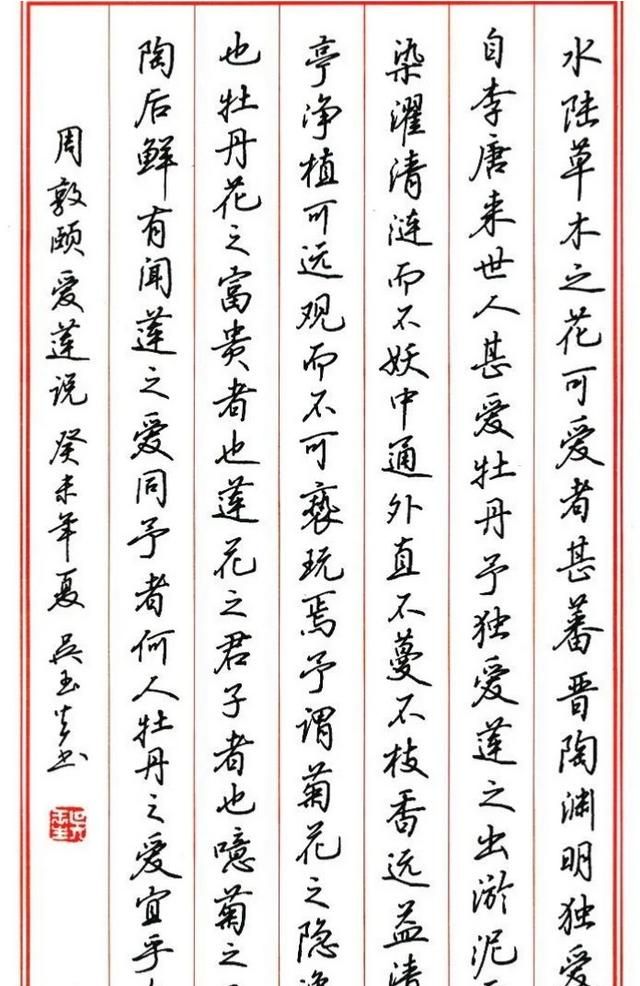 水陆草木之花可爱者甚蕃晋陶渊明独爱
自李唐来世人甚爱牡丹予独爱莲之出淤泥
染濯清涟而不妖中通外直不蔓不枝香远益清
亭净植可远观而不可亵玩焉予谓菊花之隐逸
也牡丹花之富贵者也莲花之君子者也噫菊之
陶后鲜有闻莲之爱同予者何人牡丹之爱宜乎
周敦颐爱莲说 癸未年夏 吴玉生书